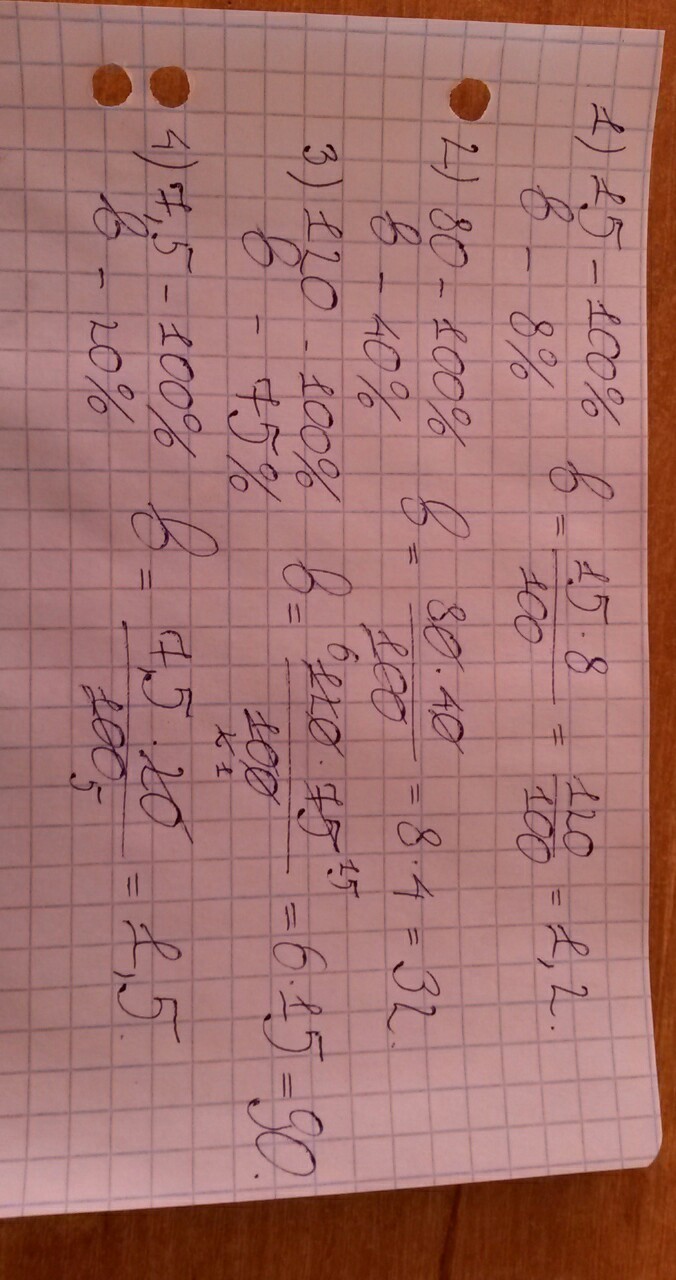 1) 15 - 100%
b - 8%
b = 15·8/100 = 120/100 = 1,2.
2) 80 - 100%
b - 40%
b = 80·40/100 = 8·4 = 32.
3) 120 - 100%
b - 75%
b = 6 120·75 15/100 = 6·15 = 90.
4) 7,5 - 100%
b - 20%
b = 7,5·20/100 5 = 1,5.